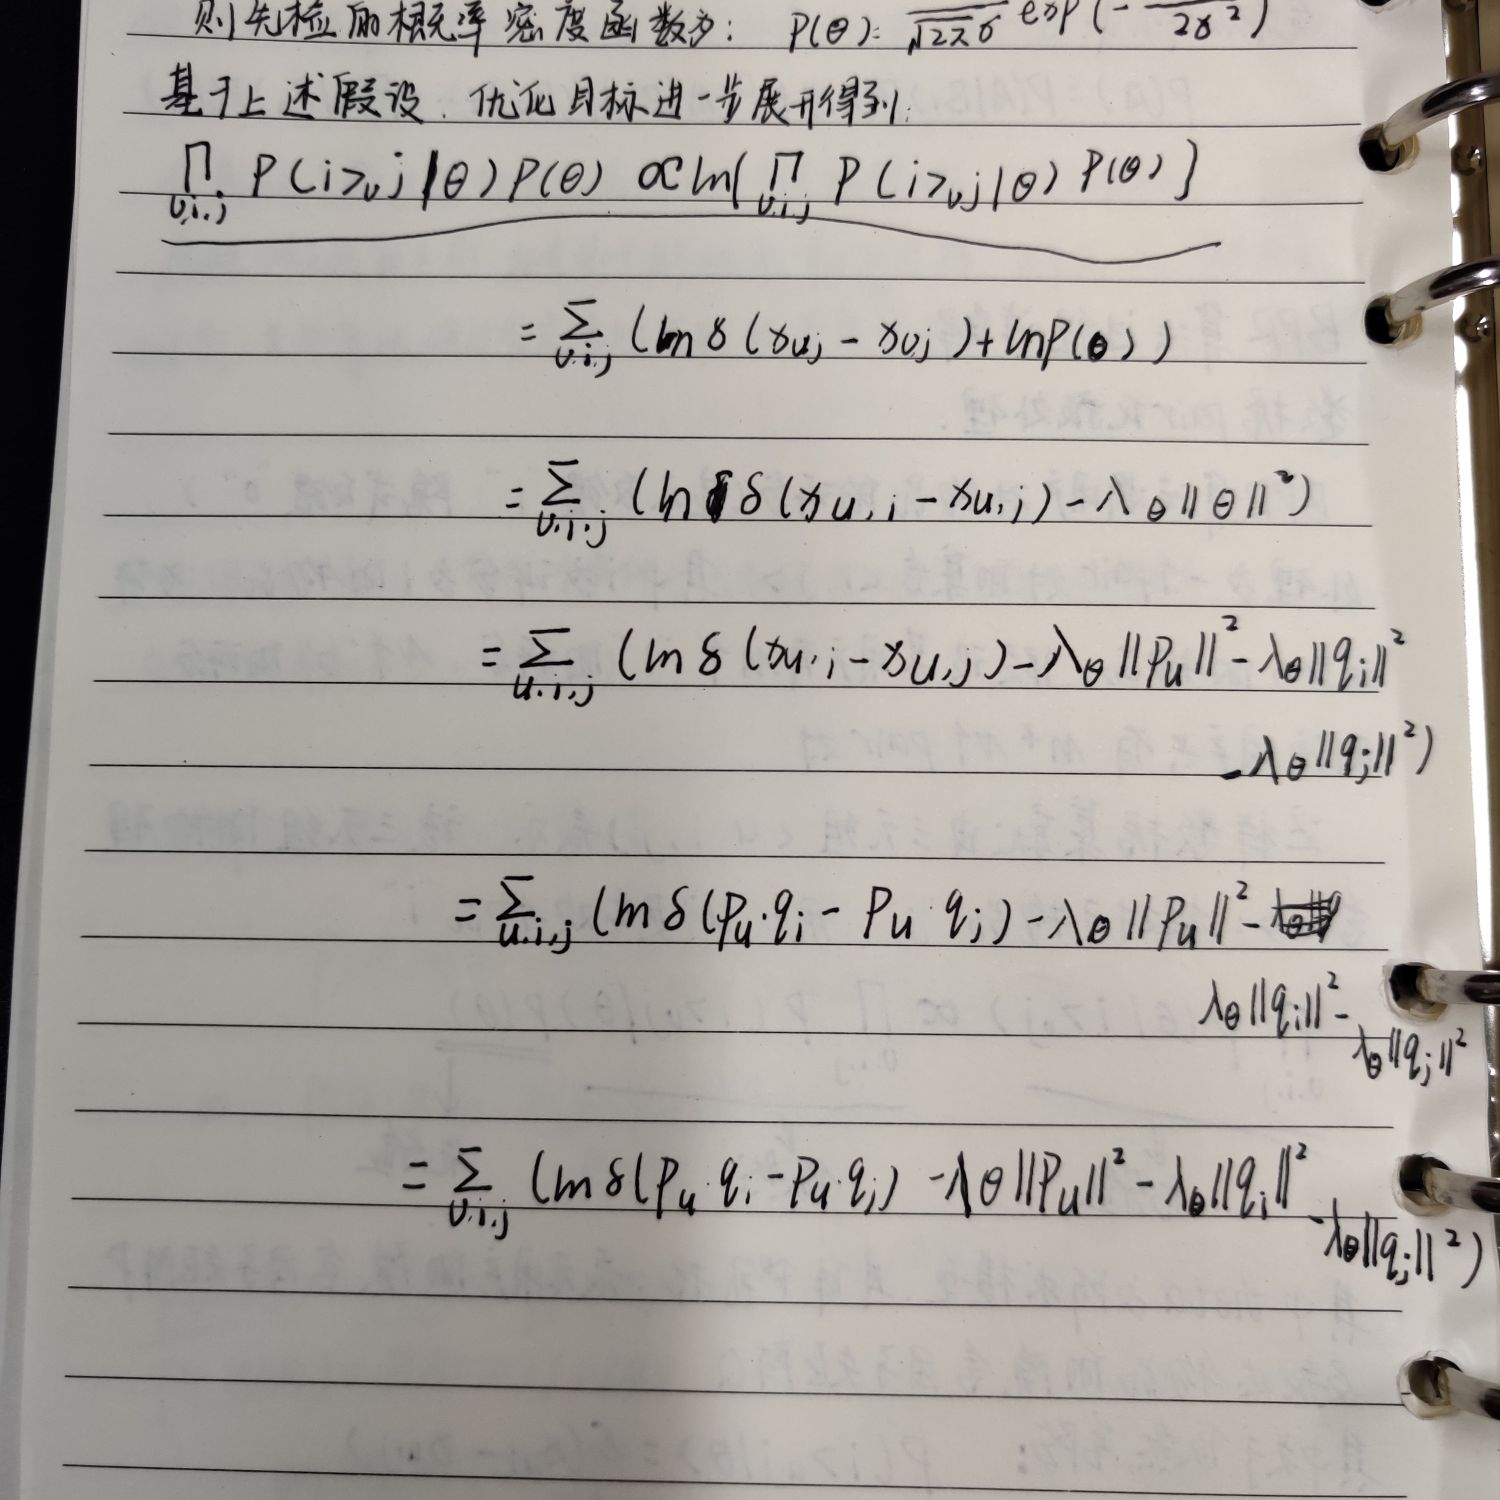 则先检的概率密度函数为: P(θ): 1/√2πδ exp(- /2δ²)
基于上述假设.优化目标进一步展开得到:
∏_{u,i,j} P(i>_u j|θ)P(θ) ∝ ln[∏_{u,i,j} P(i>_u j|θ) P(θ)]
= Σ_{u,i,j} (ln δ(x_{uj} - x_{uj}) + ln P(θ))
= Σ_{u,i,j} (ln δ(x_{u,i} - x_{u,j}) - λ_θ||θ||²)
= Σ_{u,i,j} (ln δ(x_{u,i} - x_{u,j}) - λ_θ||p_u||² - λ_θ||q_i||²
- λ_θ||q_j||²)
= Σ_{u,i,j} (ln δ(p_u·q_i - p_u·q_j) - λ_θ||p_u||² -
λ_θ||q_i||² -
λ_θ||q_j||²
= Σ_{u,i,j} (ln δ(p_u·q_i - p_u·q_j) - λ_θ||p_u||² - λ_θ||q_i||²
- λ_θ||q_j||²)